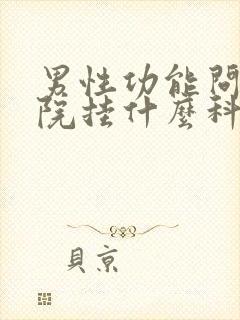 男性功能問
院挂什麼科
貝京